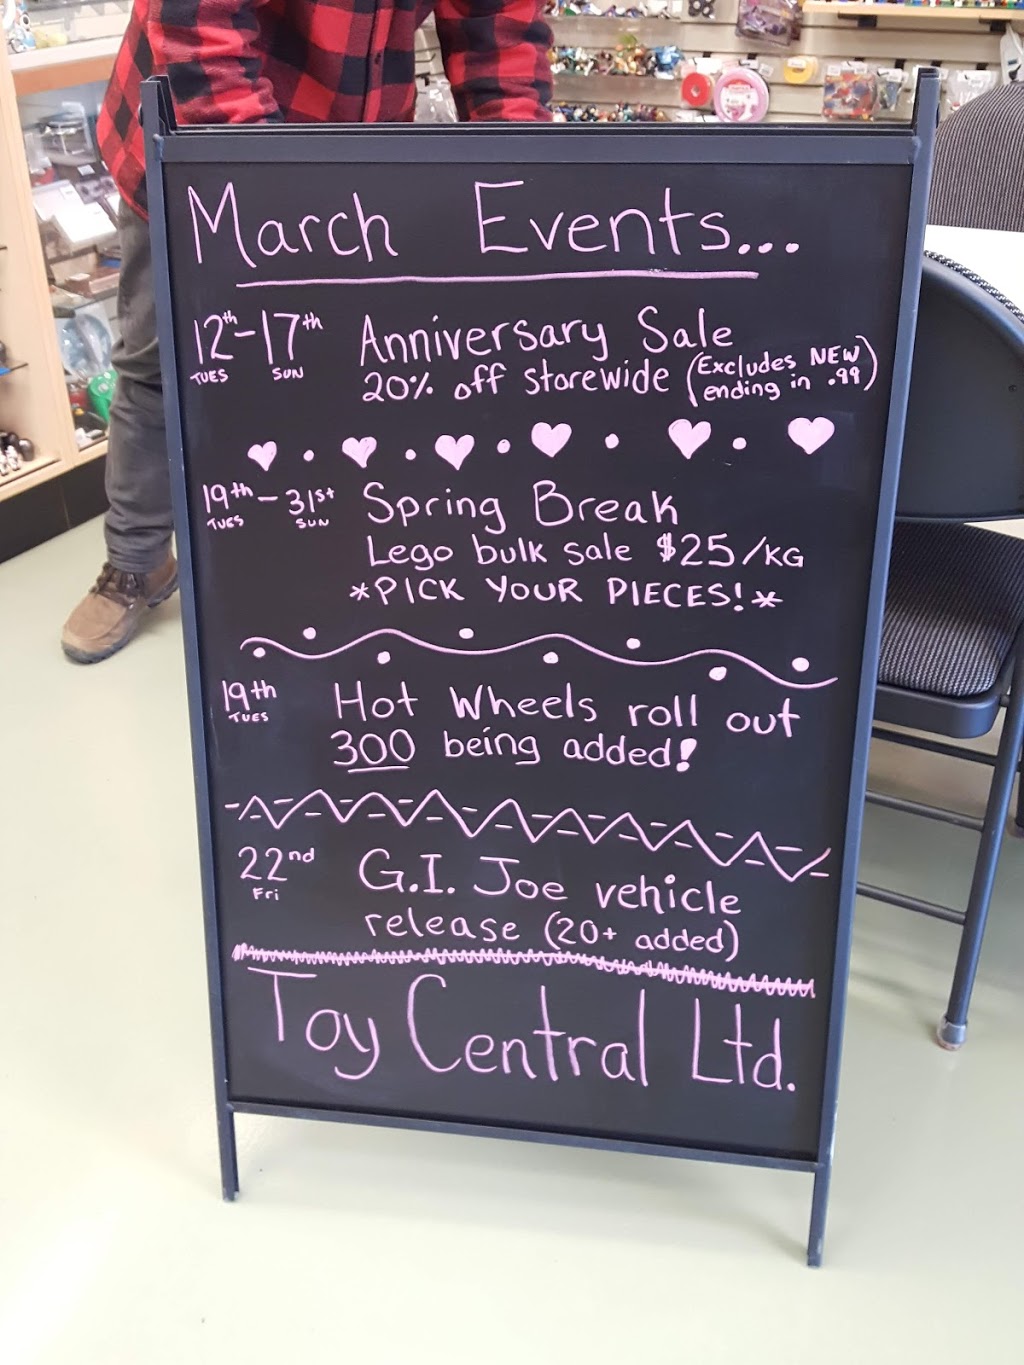 March Events...
12th - 17th Anniversary Sale
TUES SUN 20% off storewide (Excludes NEW ending in .99)
19th - 31st Spring Break
TUES SUN Lego bulk sale $25/KG
*PICK YOUR PIECES!*
19th Hot Wheels roll out
TUES 300 being added!
22nd G.I. Joe vehicle
Fri release (20+ added)
Toy Central Ltd.